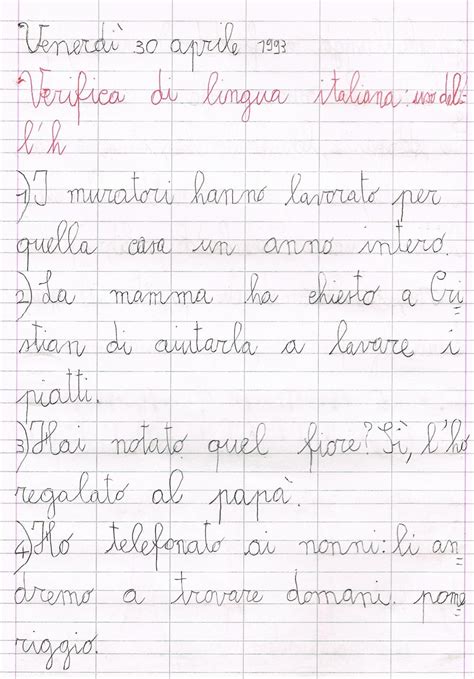 Venerdì 30 aprile 1993
Verifica di lingua italiana: uso del-
l'h
1) I muratori hanno lavorato per
quella casa un anno intero.
2) La mamma ha chiesto a Cri
stian di aiutarla a lavare i
piatti.
3) Hai notato quel fiore? Sì, l'ho
regalato al papà.
4) Ho telefonato ai nonni: li an
dremo a trovare domani. pome
riggio.